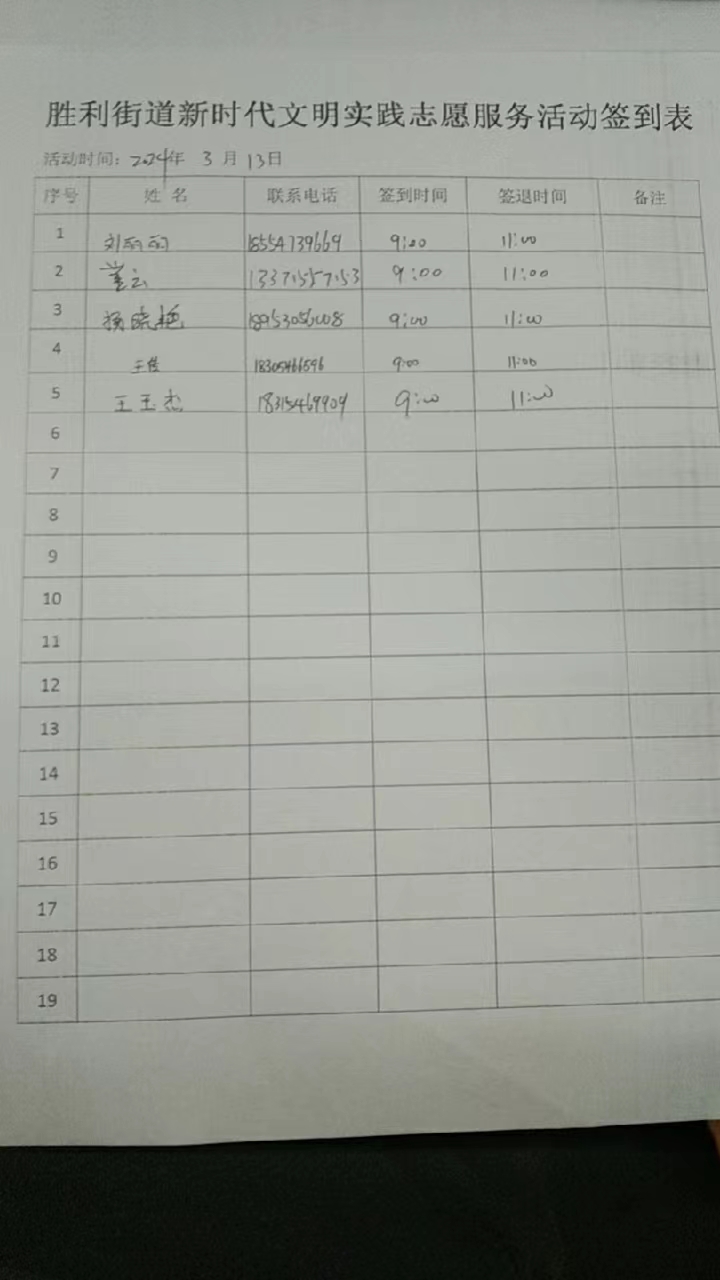 胜利街道新时代文明实践志愿服务活动签到表
活动时间：2024年 3月 13日
序号 姓 名 联系电话 签到时间 签退时间 备注
1 刘丽丽 18554739669 9:00 11:00
2 董云 13371557153 9:00 11:00
3 杨晓艳 9:00 11:00
4 王俊 18305466596 9:00 11:00
5 王玉杰 18315469909 9:00 11:00
6
7
8
9
10
11
12
13
14
15
16
17
18
19